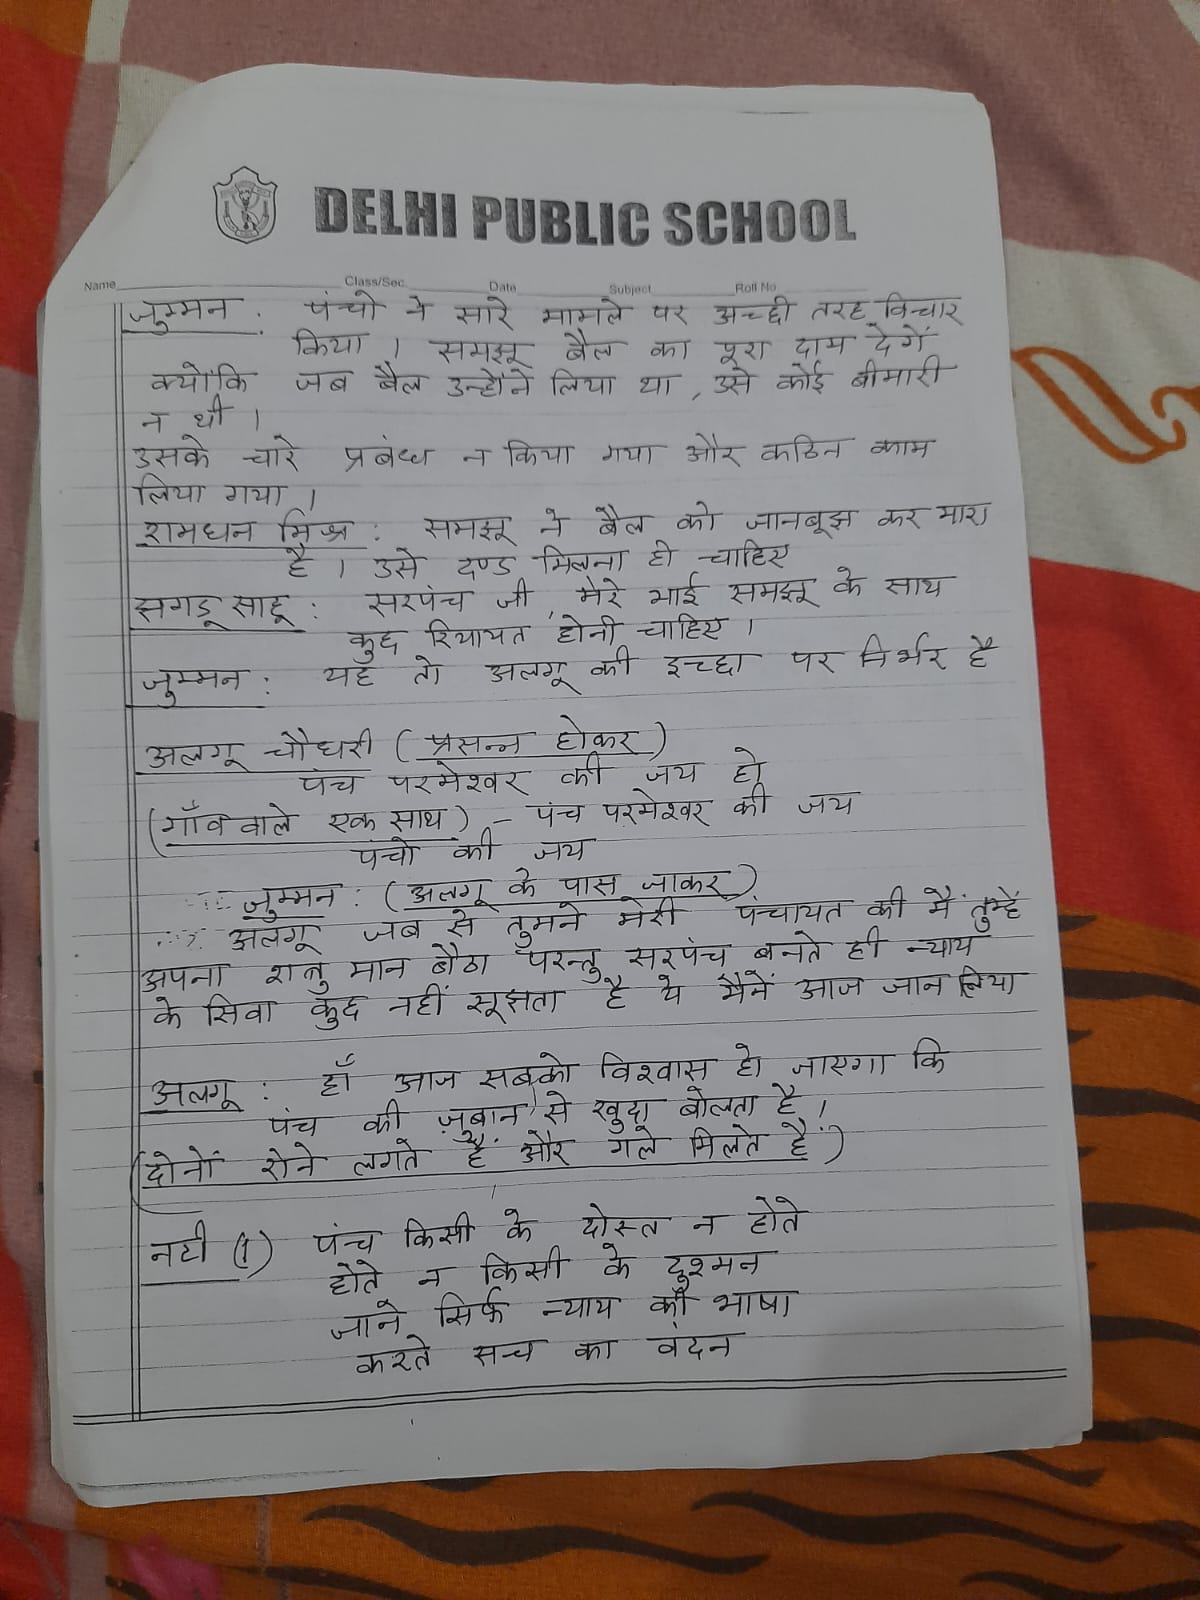 DELHI PUBLIC SCHOOL
Name Class/Sec. Date Subject Roll No
जुम्मन : पंचो ने सारे मामले पर अच्छी तरह विचार
किया । समझू बैल का पूरा दाम देगें
क्योंकि जब बैल उन्होंने लिया था , उसे कोई बीमारी
न थी ।
उसके चारे प्रबंध न किया गया और कठिन काम
लिया गया ।
रामधन मिश्र : समझू ने बैल को जानबूझ कर मारा
है । उसे दण्ड मिलना ही चाहिए
झगडू साहू : सरपंच जी , मेरे भाई समझू के साथ
कुछ रियायत होनी चाहिए ।
जुम्मन : यह तो अलगू की इच्छा पर निर्भर है
अलगू चौधरी ( प्रसन्न होकर )
पंच परमेश्वर की जय हो
(गाँव वाले एक साथ) - पंच परमेश्वर की जय
पंचो की जय
जुम्मन : (अलगू के पास जाकर)
अलगू जब से तुमने मेरी पंचायत की मैं तुम्हें
अपना शत्रु मान बैठा परन्तु सरपंच बनते ही न्याय
के सिवा कुछ नहीं सूझता है ये मैनें आज जान लिया
अलगू : हाँ आज सबको विश्वास हो जाएगा कि
पंच की ज़ुबान से खुदा बोलता है ।
(दोनों रोने लगते हैं और गले मिलते हैं)
नटी (1) पंच किसी के दोस्त न होते
होते न किसी के दुश्मन
जाने सिर्फ न्याय की भाषा
करते सच का वंदन